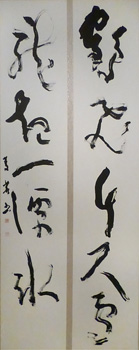 鶴飛千尺雪
龍起一潭冰